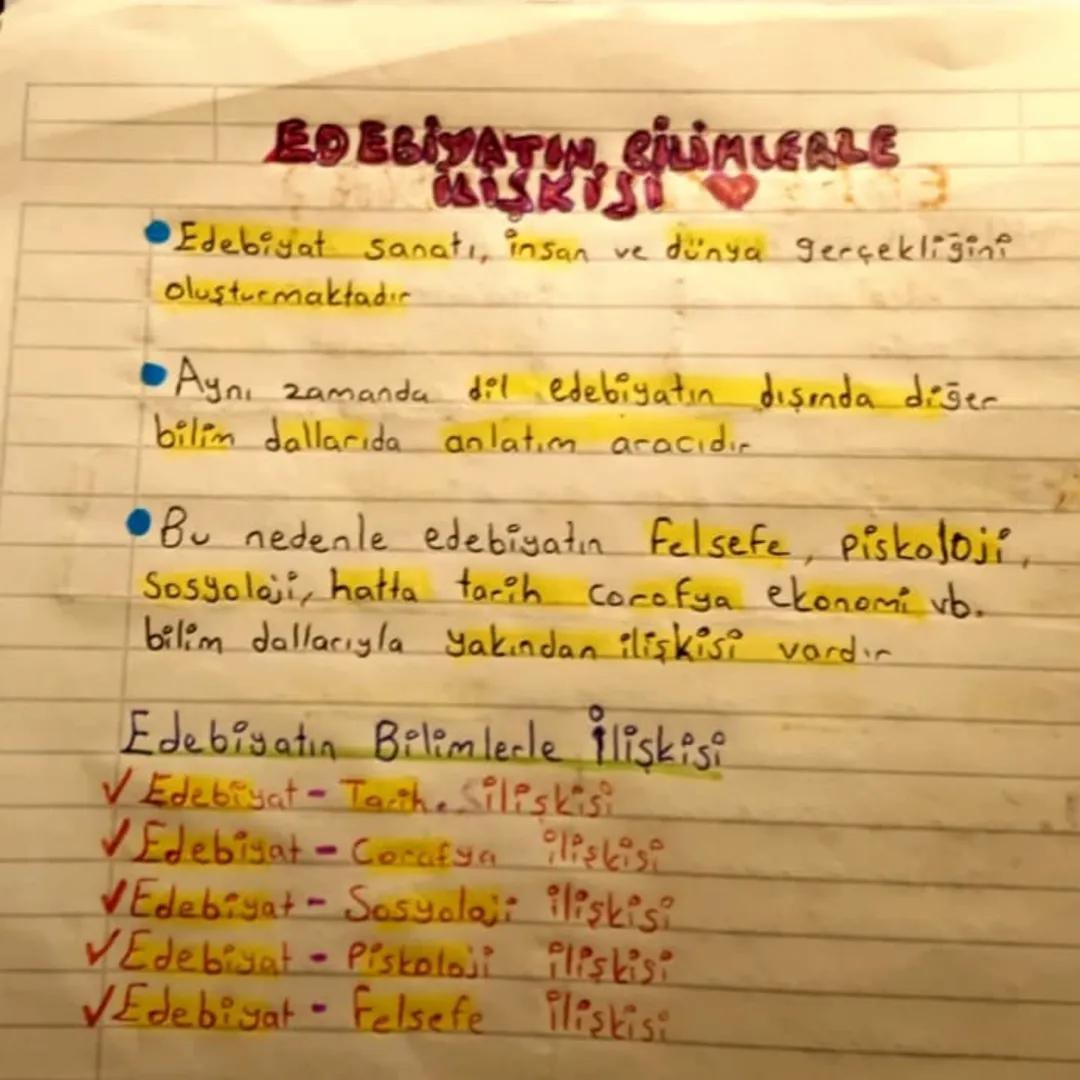 EDEBİYATIN BİLİMLERLE
İLİŞKİSİ
Edebiyat sanatı, insan ve dünya gerçekliğini
oluşturmaktadır
Aynı zamanda dil edebiyatın dışında diğer
bilim dallarıda anlatım aracıdır
Bu nedenle edebiyatın Felsefe, piskoloji,
Sosyoloji, hatta tarih corofya ekonomi vb.
bilim dallarıyla yakından ilişkisi vardır
Edebiyatın Bilimlerle İlişkisi
✓ Edebiyat - Tarih ilişkisi
✓ Edebiyat - Corafya ilişkisi
✓ Edebiyat - Sosyoloji ilişkisi
✓ Edebiyat - Piskoloji ilişkisi
✓ Edebiyat - Felsefe ilişkisi